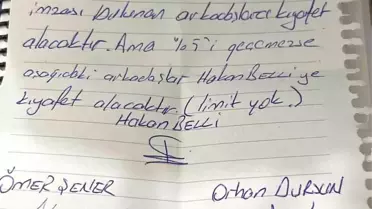 imzası bulunan arkadaşlarca kıyafet
alacaktır. Ama %5'i geçmezse
aşağıdaki arkadaşlar Hakan BELLi ye
kıyafet alacaktır. (limit yok.)
Hakan BELLi
ÖMER ŞENER Orhan DURSUN